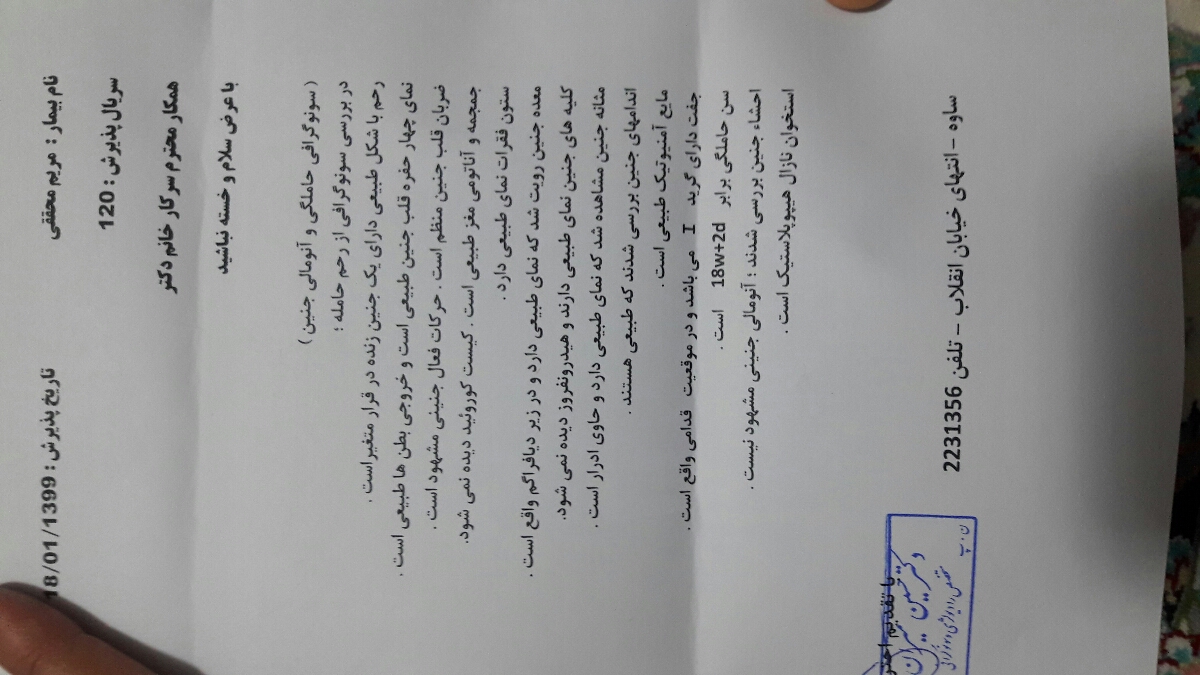 نام بیمار : مریم محققی
تاریخ پذیرش : 18/01/1399
سریال پذیرش : 120
همکار محترم سرکار خانم دکتر
با عرض سلام و خسته نباشید
( سونوگرافی حاملگی و آنومالی جنین )
در بررسی سونوگرافی از رحم حامله :
رحم با شکل طبیعی دارای یک جنین زنده در قرار متغیراست .
نمای چهار حفره قلب جنین طبیعی است و خروجی بطن ها طبیعی است .
ضربان قلب جنین منظم است . حرکات فعال جنینی مشهود است .
جمجمه و آناتومی مغز طبیعی است . کیست کوروئید دیده نمی شود.
ستون فقرات نمای طبیعی دارد .
معده جنین رویت شد که نمای طبیعی دارد و در زیر دیافراگم واقع است .
کلیه های جنین نمای طبیعی دارند و هیدرونفروز دیده نمی شود.
مثانه جنین مشاهده شد که نمای طبیعی دارد و حاوی ادرار است .
اندامهای جنین بررسی شدند که طبیعی هستند .
مایع آمنیوتیک طبیعی است .
جفت دارای گرید I می باشد و در موقعیت قدامی واقع است .
سن حاملگی برابر 18w+2d است .
احشاء جنین بررسی شدند ؛ آنومالی جنینی مشهود نیست .
استخوان نازال هیپوپلاستیک است .
با تقدیم
دکتر
متخصص رادیولوژی و سونوگرافی
ن . پ
ساوه - انتهای خیابان انقلاب - تلفن 2231356